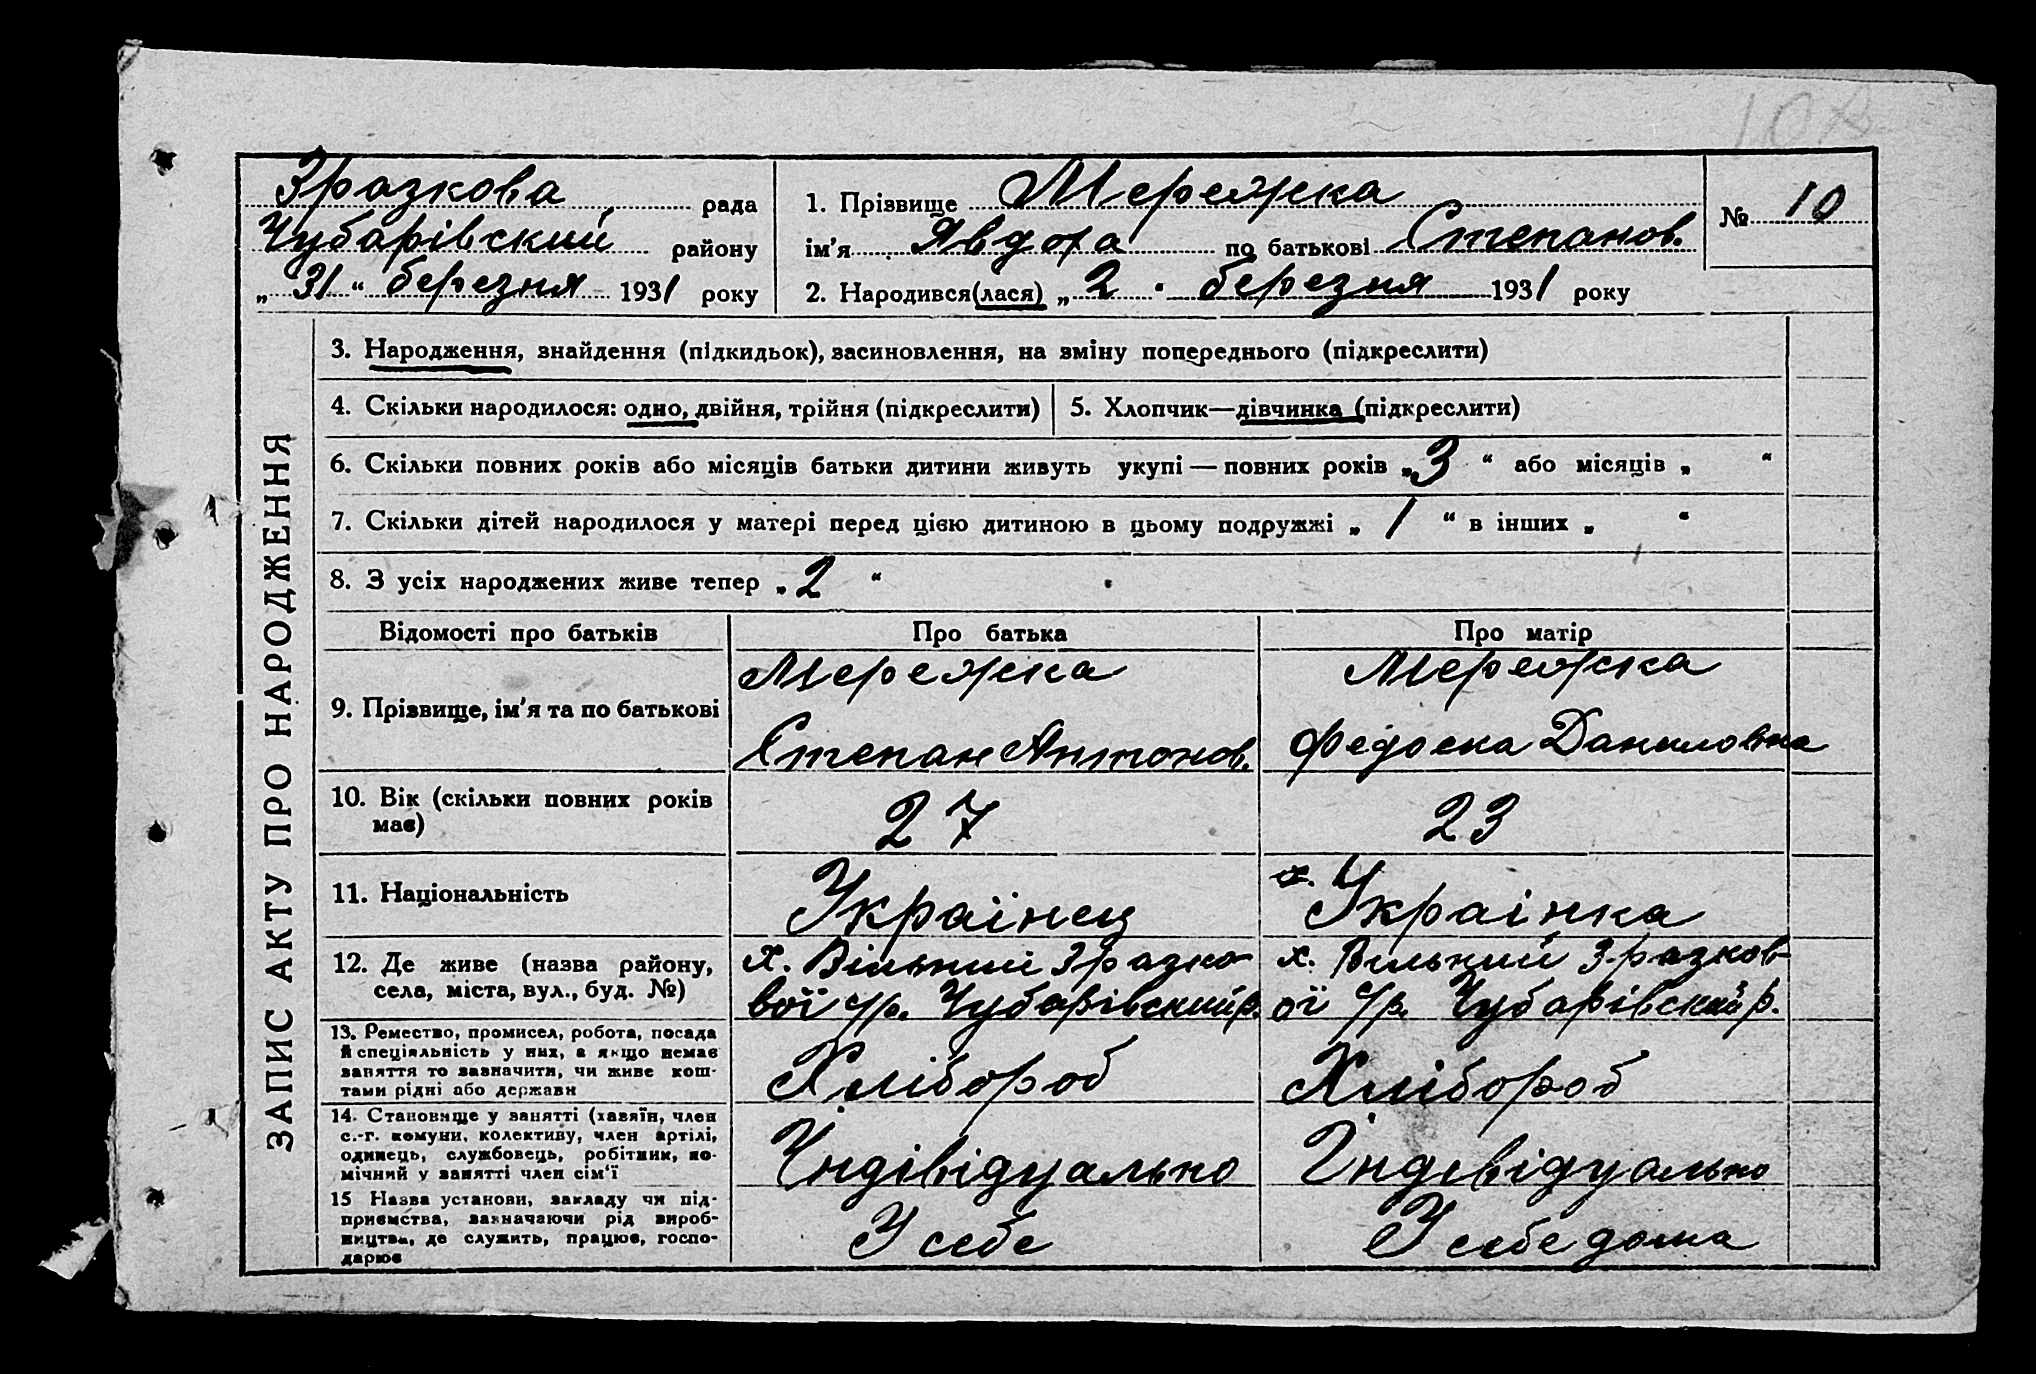 10
Зразкова рада
Чубарівский району
„31“ березня 1931 року
1. Прізвище Мережка
ім'я Явдоха по батькові Степанов.
2. Народився(лася) „2“ березня 1931 року
№ 10
ЗАПИС АКТУ ПРО НАРОДЖЕННЯ
3. Народження, знайдення (підкидьок), засиновлення, на зміну попереднього (підкреслити)
4. Скільки народилося: одно, двійня, трійня (підкреслити)
5. Хлопчик—дівчинка (підкреслити)
6. Скільки повних років або місяців батьки дитини живуть укупі — повних років „3“ або місяців „ “
7. Скільки дітей народилося у матері перед цією дитиною в цьому подружжі „1“ в інших „ “
8. З усіх народжених живе тепер „2“
Відомості про батьків
Про батька
Про матір
9. Прізвище, ім'я та по батькові
Мережка
Степан Антонов.
Мережка
Федоска Даниловна
10. Вік (скільки повних років
має)
27
23
11. Національність
Українец
х. Українка
12. Де живе (назва району,
села, міста, вул., буд. №)
х. Вільний Зразко
вої с/р. Чубарівский р.
х. Вильний Зразков
ої с/р. Чубарівский р.
13. Ремество, промисел, робота, посада
й спеціяльність у них, а якщо немає
заняття то зазначити, чи живе кош-
тами рідні або держави
Хлібороб
Хлібороб
14. Становище у занятті (хазяїн, член
с.-г. комуни, колективу, член артілі,
одинець, службовець, робітник, по-
мічний у занятті член сім'ї
Індівідуально
Індивідуально
15 Назва установи, закладу чи під-
приємства, зазначаючи рід вироб-
ництва, де служить, працює, госпо-
дарює
У себе
У себе дома